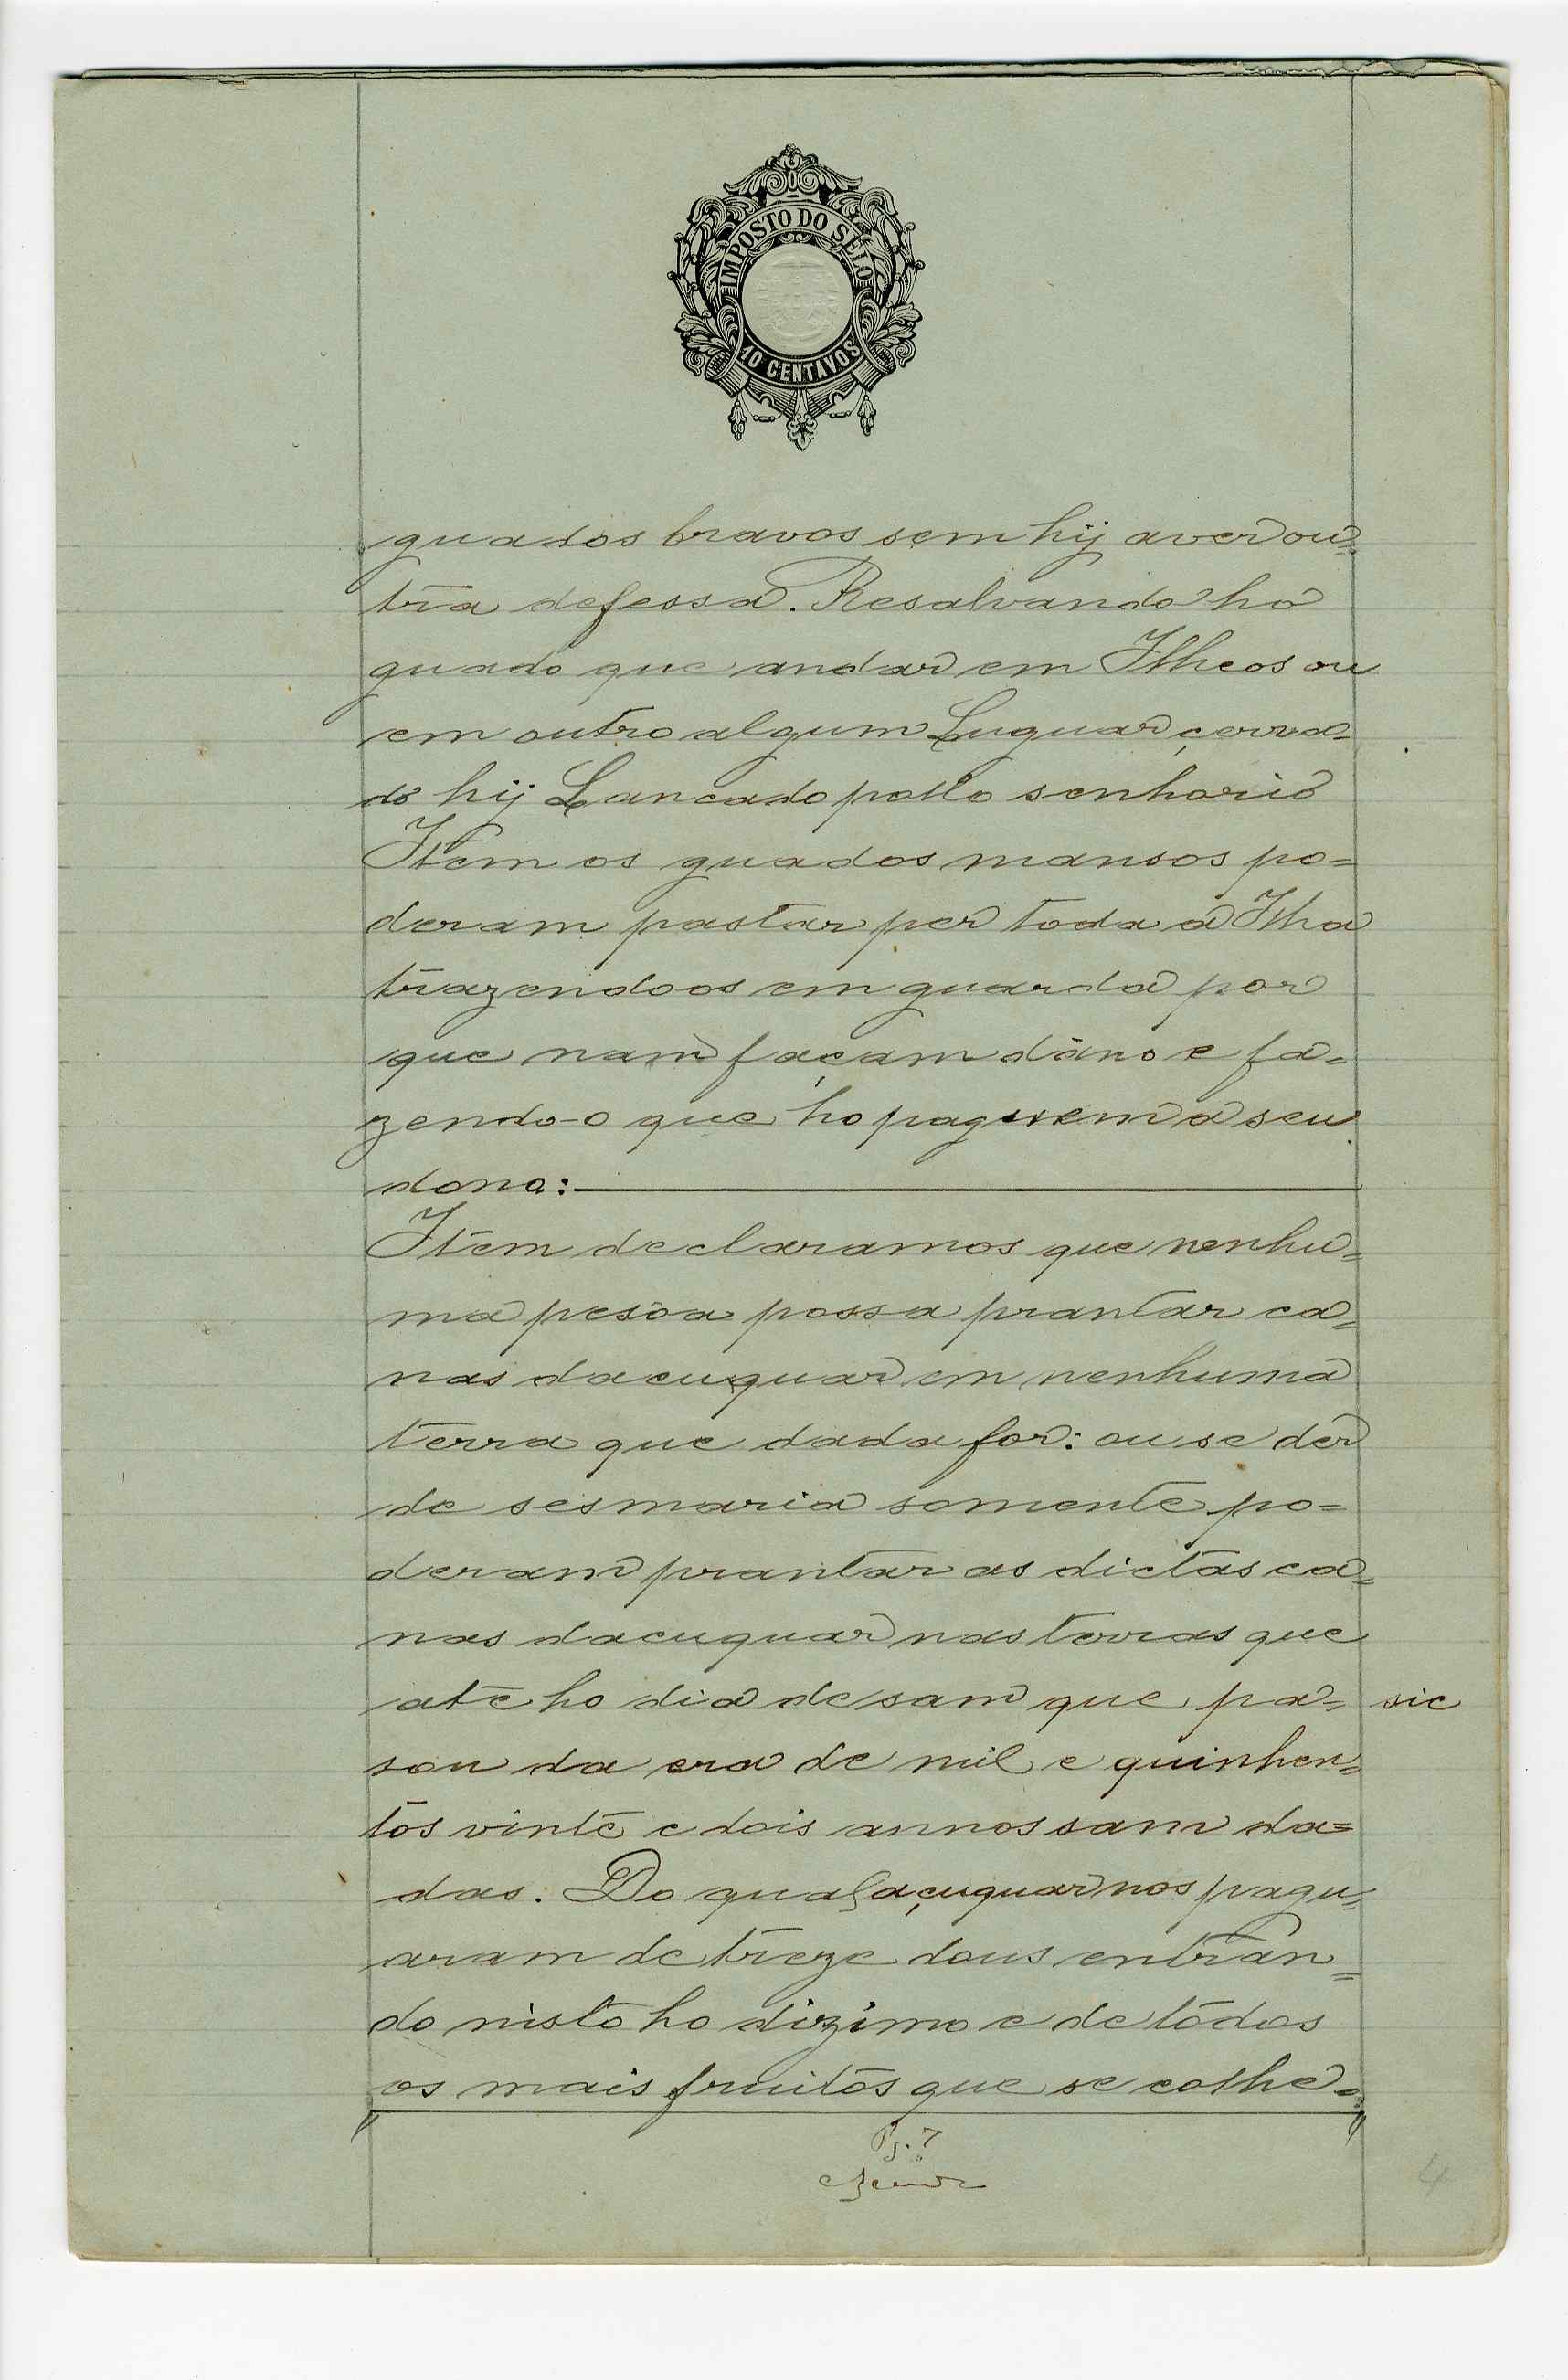 IMPOSTO DO SELO
10 CENTAVOS
guados bravos sem hij aver ou=
tra defessa. Resalvando ho
guado que andar em Ilheos ou
em outro algum Luguar çerra=
do hij Lancado pollo senhorio
Item os guados mansos po=
deram pastar per toda a Ilha
trazendoos em guarda por
que nam façam dano e fa=
zendo-o que ho paguem a seu
dono:
Item declaramos que nenhu=
ma pesoa possa prantar ca=
nas dacuquar em nenhuma
terra que dada for: ou se der
de sesmaria somente po=
deram prantar as dictas ca=
nas dacuquar nas terras que
ate ho dia de sam que pa= sic
sou da era de mil e quinhen=
tos vinte e dois annos sam da=
das. Do qual açuquar nos pagu=
aram de treze dous entran=
do nisto ho dizimo e de todos
os mais fruitos que se colhe=
Pg. 7
4